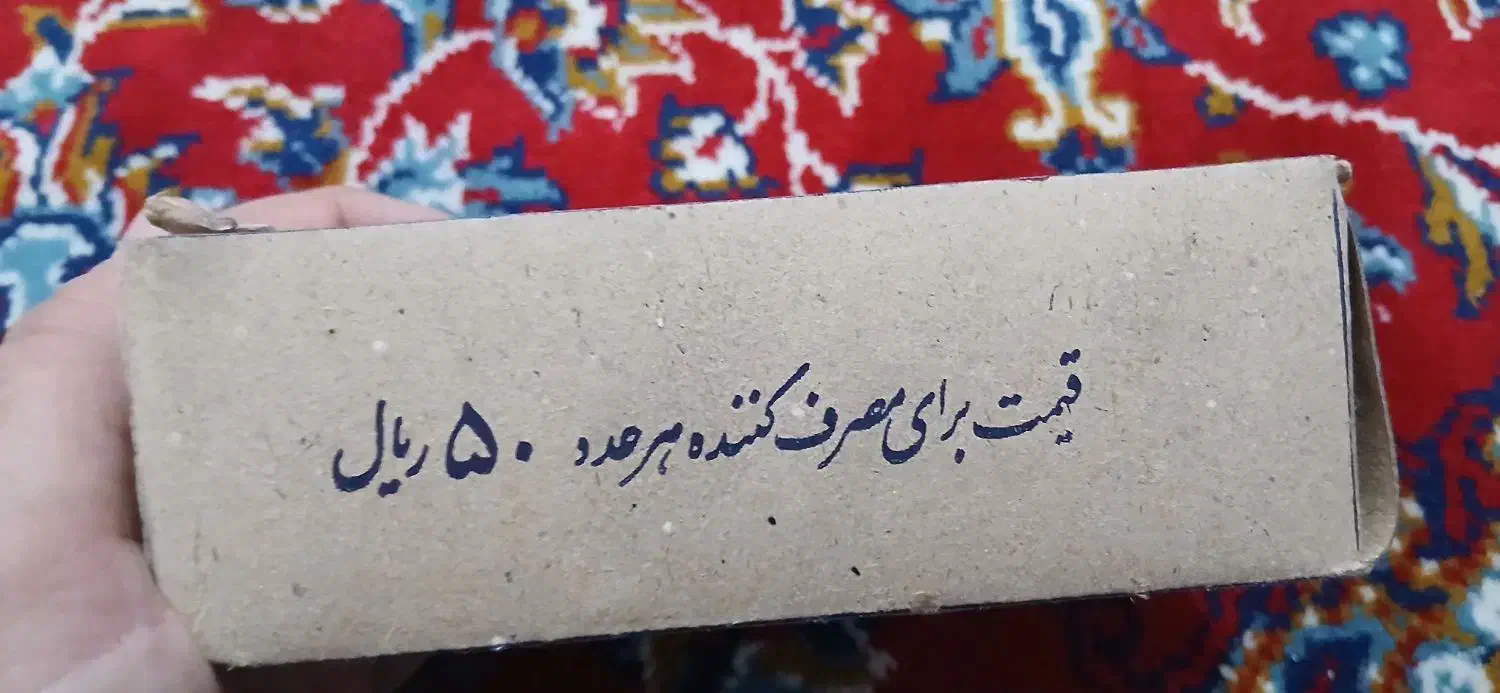 قیمت برای مصرف کننده هر عدد ۵۰ ریال